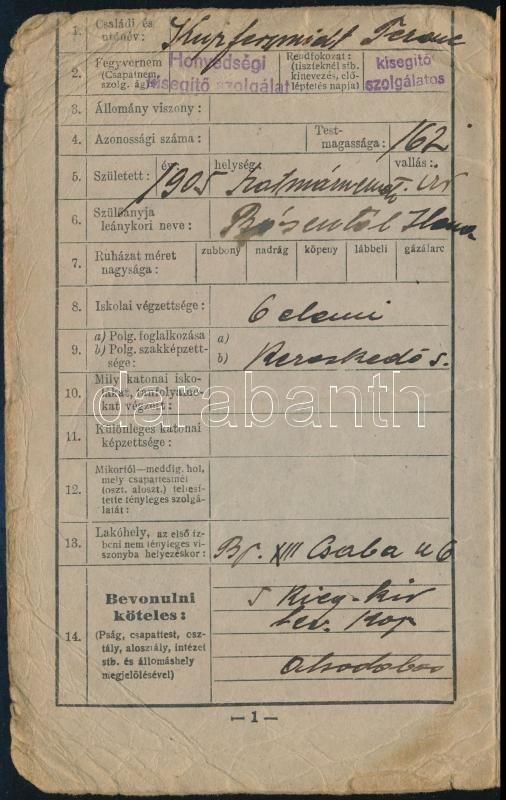 1. Családi és utónév: Kupferschmidt Ferenc
2. Fegyvernem (Csapatnem, szolg. ág) Honvédségi kisegítő szolgálat Rendfokozat: (tiszteknél stb. kinevezés, előléptetés napja) kisegítő szolgálatos
3. Állomány viszony:
4. Azonossági száma: Testmagassága: 162
5. Született: év 1905 helység vallás: izr
6. Szülőanyja leánykori neve: Ilona
7. Ruházat méret nagysága: zubbony nadrág köpeny lábbeli gázálarc
8. Iskolai végzettsége: 6 elemi
9. a) Polg. foglalkozása a)
b) Polg. szakképzettsége: b) Kereskedő s.
10. Mily katonai iskolákat, tanfolyamokat végzett:
darabanth
11. Különleges katonai képzettsége:
12. Mikortól—meddig, hol, mely csapattestnél (oszt. aloszt.) teljesítette tényleges szolgálatát:
13. Lakóhely, az első ízbeni nem tényleges viszonyba helyezéskor: Bp. XIII Csaba u 6
14. Bevonulni köteles:
(Pság, csapattest, osztály, alosztály, intézet stb. és állomáshely megjelölésével)
— 1 —